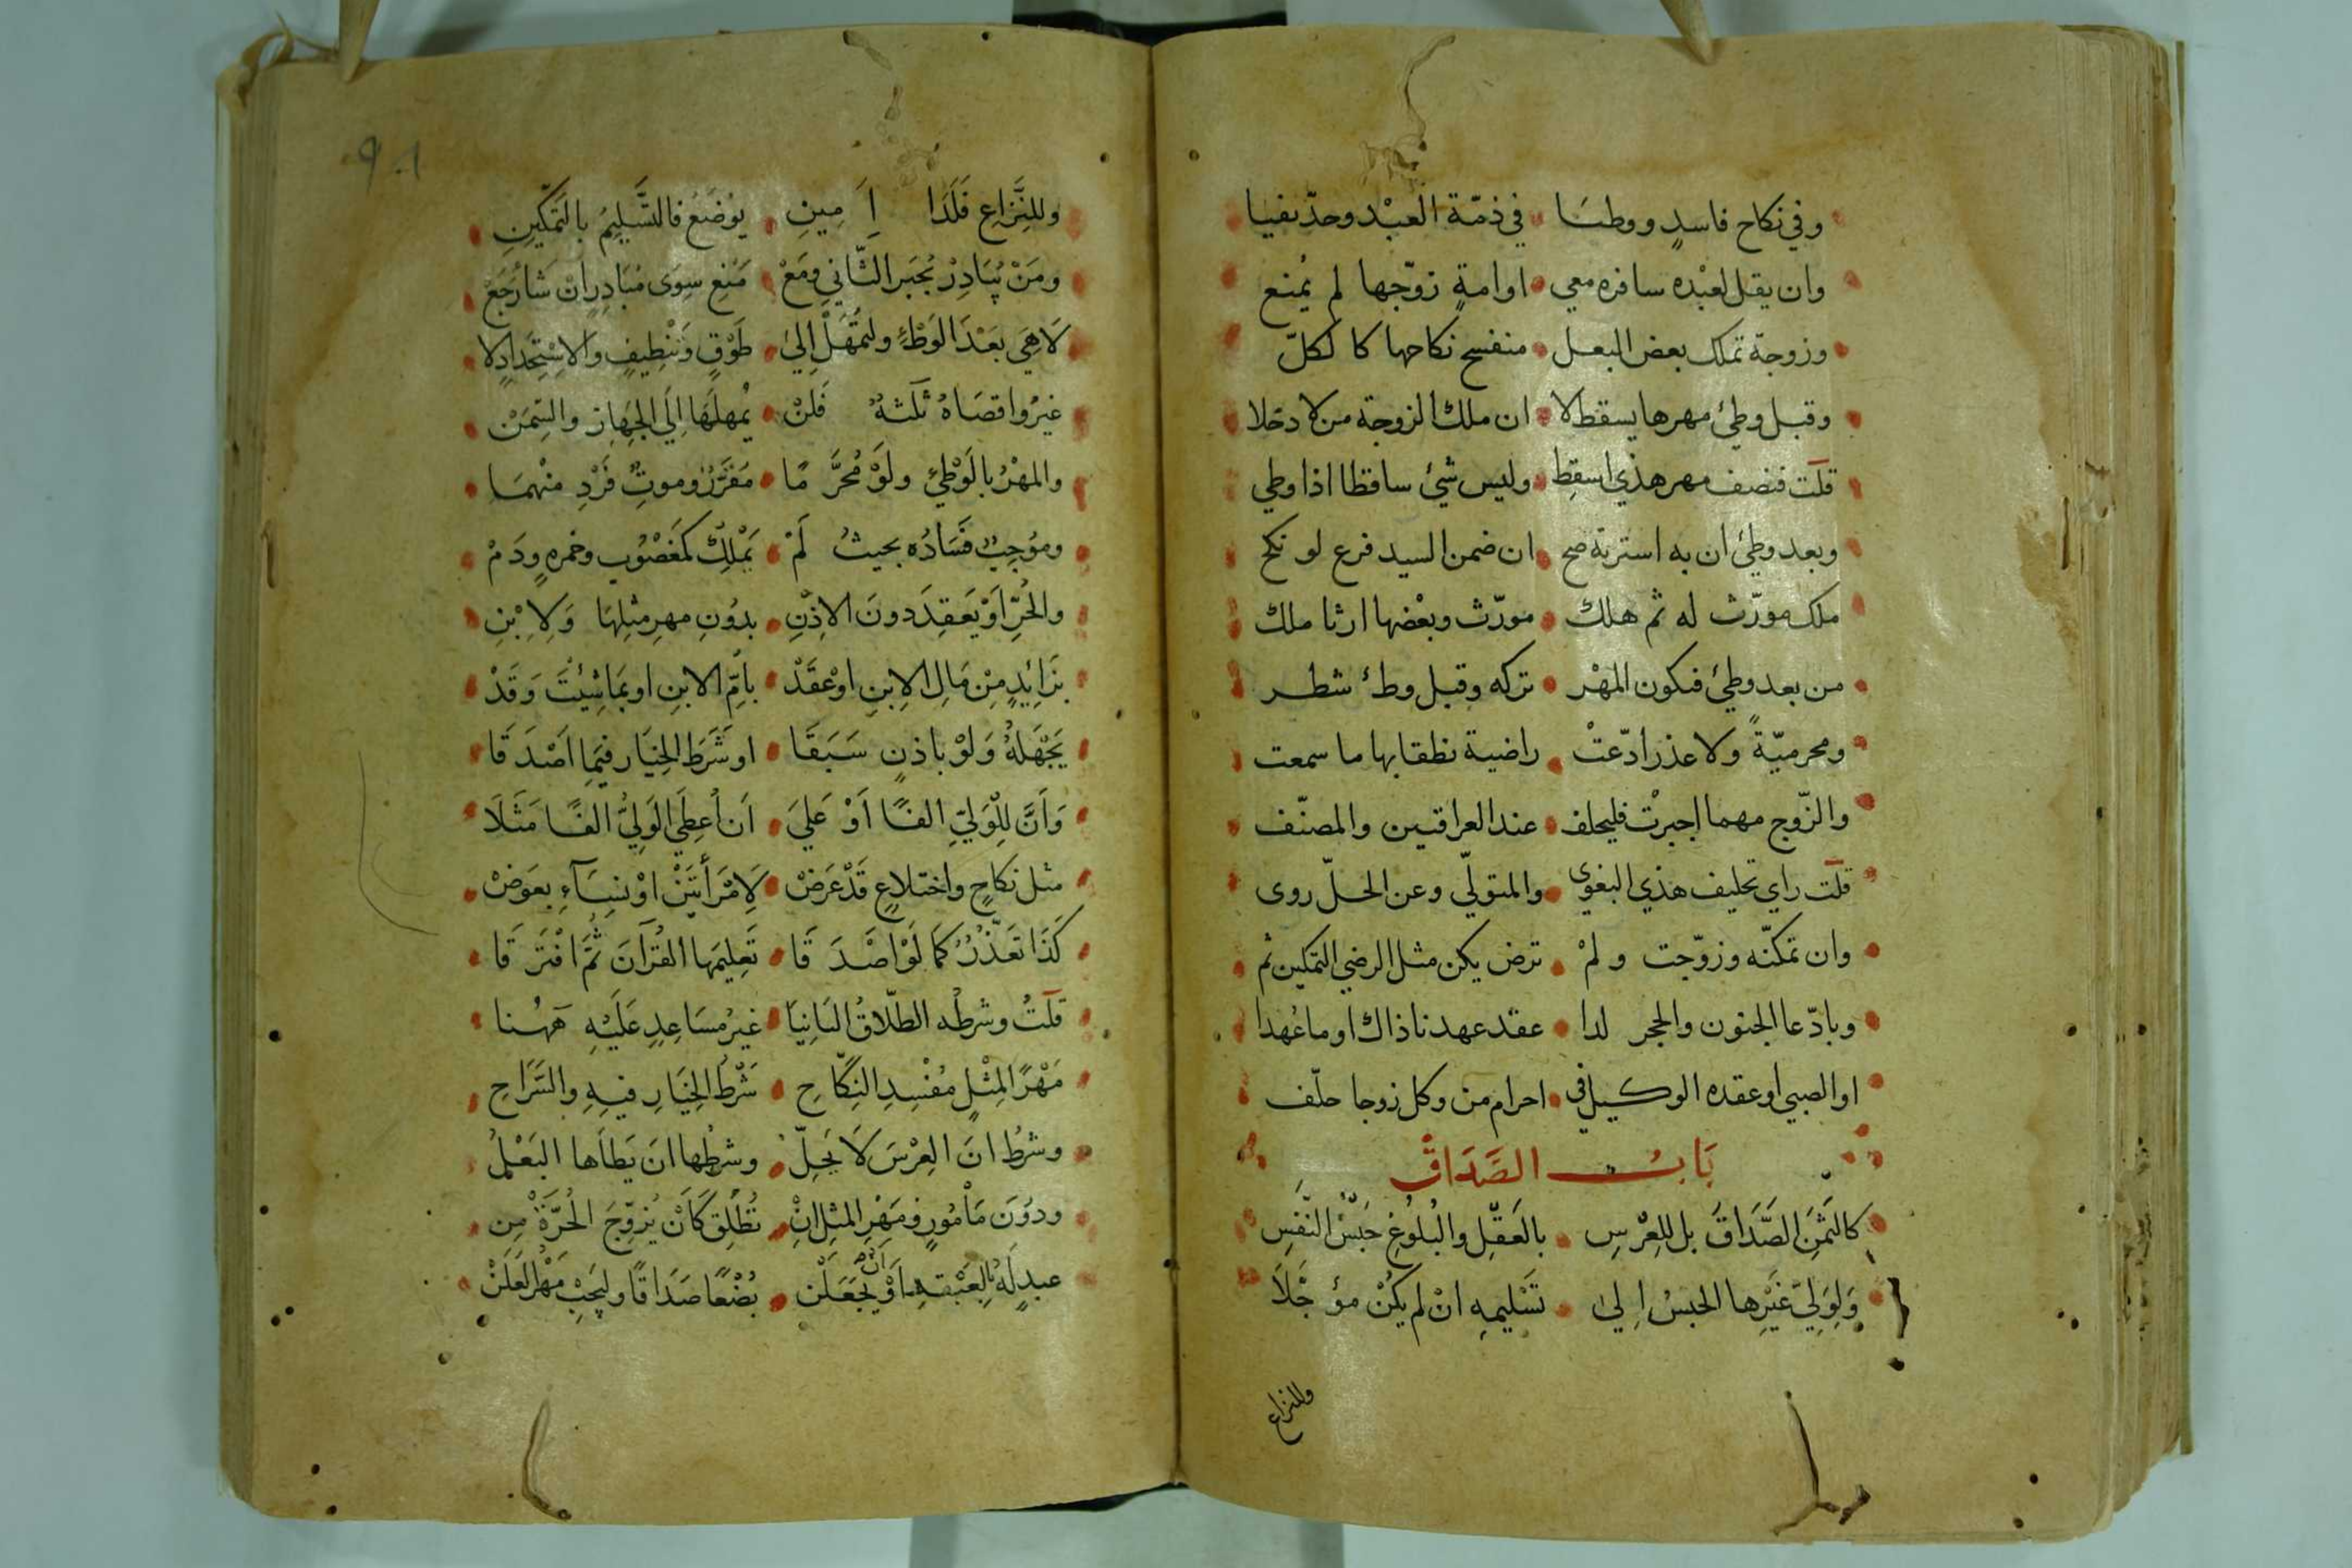 وفي نكاح فاسدٍ ووطئا • في ذمّة العبْد وحدّ نفيا
وان يقل لعبْده سافره معي • او امةٍ زوّجها لم يُمنع
وزوجة تملك بعض البعل • منفسخ نكاحها كالكلّ
وقبل وطئ مهرها يسقط لا • ان ملك الزوجة من لا دخلا
قلت فنصف مهر هذي اسقِط • وليس شئ ساقطا اذا وطي
وبعد وطئ ان به استرته صح • ان ضمن السيد فرع لو نكح
ملك مورّث له ثم هلك • مورّث وبعْضها ارثا ملك
من بعد وطئ فيكون المهْر • تركه وقبل وطئ شطر
ومحرميّةً ولا عذر ادّعتْ • راضية نطقا بها ما سمعت
والزّوج مهما اجبرْت فليحلف • عند العراقيين والمصنّف
قلت راي تحليف هذي البغوي • والمتولّي وعن الحلّ روى
وان تمكنّه وزوّجت ولمْ • ترض يكن مثل الرضي التمكين ثم
وبادّعا الجنون والحجر لدا • عقد عهدنا ذاك او ما عُهدا
او الصبي او عقده الوكيل في • احرام من وكل زوجا حلّف
بَابُ الصَّدَاق
كالثَمنِ الصَّدَاقُ بل للعِرْسِ • بالعَقْلِ والبُلُوغِ حَبْسُ النّفسِ
وَلِوَلِيّ غَيْرِها الحبسُ اِلىٰ • تَسْليمهِ انْ لم يكُنْ مؤجَّلَا
وللنزاع
٩٠١
وللنِّزاعِ فَلَدَا اَمِينِ • يوُضَعُ فالتَّسْلِيمُ بالتَمكّينِ
ومَنْ يُبَادِرْ يُجبَر الثّاني ومَعْ • مَنْعِ سِوَى مُبَادِرٍ انْ شَا رَجَعْ
لَا هِيَ بعَدَْ الوَطْئِ ولتُمْهَلْ اِلىٰ • طَوْقٍ وَتَنْظِيفٍ والاِسْتِحْدادٍ لا
غيرُ واقصَاهُ ثَلَثهٌ فَلنْ • يُمْهِلَهَا اِلَي الجَهَازِ والسِّمَنْ
والمهْرُ بالوَطْئِ ولَوْ مُحَرَّمًا • مَقَرَّرٌ وموتِ فَرْدِ منْهمَا
وموُجِبٌ فسَادُه بحيثُ لَمْ • يَمْلِكْ كمَغْصُوُبٍ وخمرهٍ ودَمْ
والحُرِّ اَوْ يَعقِدَ دونَ الاِذْنِ • بدوُنِ مهرِ مثِلِهَا وَلِاِبْنِ
بزَائِدٍ مِنْ مَالِ الاِبنِ اوْ عَقَدْ • باُمِّ الابنِ او بمَا شِيْئتَ وَقَدْ
يَجْهَلهُ وَلوْ باذنٍ سَبَقَا • او شَرَطَ الخِيَار فيَما اَصْدَقَا
وَاَنَّ لِلْوَليِّ الفًا أوْ عَليَ • اَن اُعطِيَ الوَلِيُّ الفًا مَثَلَا
مثل نكاحٍ واختلاعٍ قَدْ عَرَضْ • لاِمْرَأتَيْنِ اوْ نِسَآءِ بعوَضْ
كَذَا تَعَذُّرٌ كمَا لَوْ اَصْدَقَا • تَعِليمَها القُرْآنَ ثُمَّ افْتَرَقَا
قلَتُ وشرطُه الطّلاقُ البَائِنِا • غيرُ مسَاعِدٍ عَلَيْهِ هَهُنا
مَهْرًا المِثْلِ مُفْسِدِ النِكّاحِ • شَرْطُ الخِيَارِ فيهِ والسَّرَاحِ
وشرْطُ انَ العِرْسَ لَا يَحِلّ • وشرطُها ان يَطَاَها البَعْلُ
ودوُنَ مَأْمُورٍ ومَهْرِ المثِلِ انْ • تُطْلِق كَاَنْ يُزوِّجَ الحُرَّةَ مِن
عبدٍ لَهُ بالعَبْدِ اَوْ اَن يَجعَلَنْ • بُضْعًا صَدَاقًا وليَجِبْ مَهْرُ لَعَلَنْ